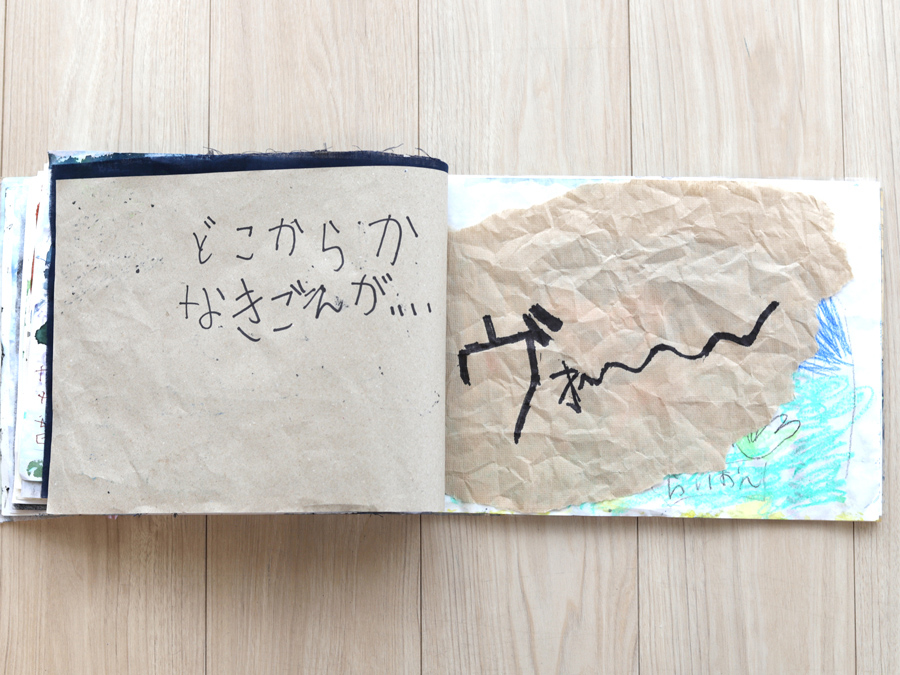 どこからか
なきごえが....
ヴォ〜〜〜
らいおん